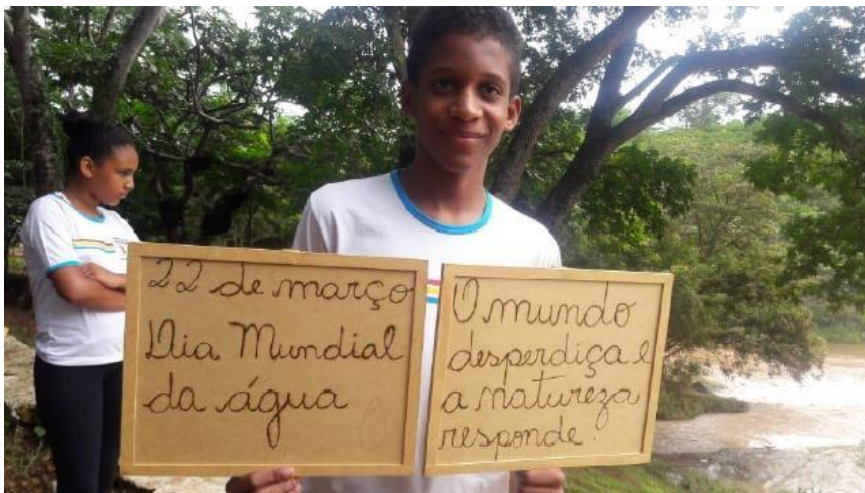 22 de março
Dia Mundial
da água
O mundo
desperdiça e
a natureza
responde.